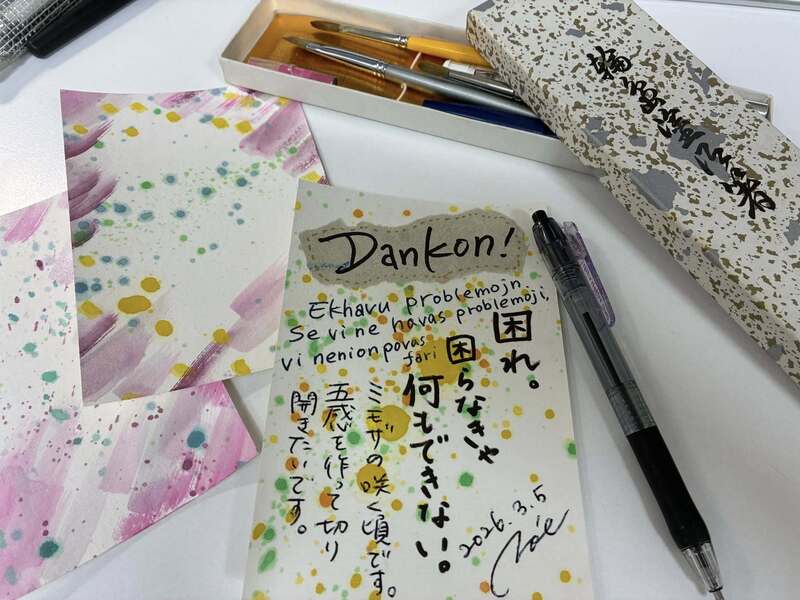 Dankon!
Ekhavu problemojn
Se vi ne havas problemoji,
vi nenion povas
fari
困れ。
困らなきゃ
何もできない。
ミモザの咲く頃です。
五感を作って切り
開きたいです。
2026.3.5